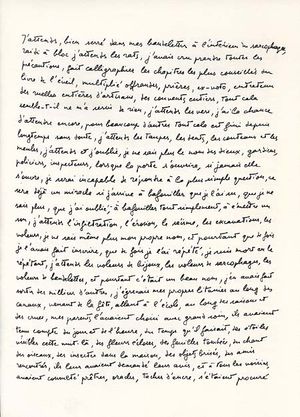 J'attends, bien serré dans mes bandelettes à l'intérieur du sarcophage,
raidi à bloc j'attends les rats, j'avais cru prendre toutes les
précautions, fait calligraphier les chapitres les plus conseillés du
livre de l'exil, multiplié offrandes, prières, ex-voto, entretenu
des ruelles entières d'artisans, des couvents entiers, tout cela
semble-t-il ne m'a servi de rien, j'attends les vers, j'ai la chance
d'attendre encore, pour beaucoup d'autres tout cela est fini depuis
longtemps sans doute, j'attends les taupes, les dents, les couteaux et les
meules, j'attends et j'oublie, je ne sais plus le nom des dieux, gardiens,
policiers, inspecteurs, lorsque la porte s'ouvrira, si jamais elle
s'ouvre, je serai incapable de répondre à la plus simple question, ce
sera déjà un miracle si j'arrive à bafouiller que je l'ai su, que je ne
sais plus, que j'ai oublié, à bafouiller tout simplement, à émettre un
son, j'attends l'infiltration, l'érosion, le séisme, les excavations, les
voleurs, je ne sais même plus mon propre nom, et pourtant que de fois
je l'avais fait inscrire, que de fois je l'ai répété, je suis mort en le
répétant, j'attends les voleurs de bijoux, les voleurs de sarcophages, les
voleurs de bandelettes, et pourtant c'était un beau nom, j'en avais fait
sortir des milliers d'autres, j'égrenais mes propres litanies au long des
canaux, venant de la fête, allant à l'école, au long des saisons et
des crues, mes parents l'avaient choisi avec grand soin, ils avaient
tenu compte du jour et de l'heure, du temps qu'il faisait, des étoiles
visibles cette nuit-là, des fleurs écloses, des feuilles tombées, du chant
des oiseaux, des insectes dans la maison, des objets brisés, des amis
rencontrés, ils leur avaient demandé leur avis, et à tous les voisins,
avaient consulté prêtres, oracles, taches d'encre, s'étaient procuré